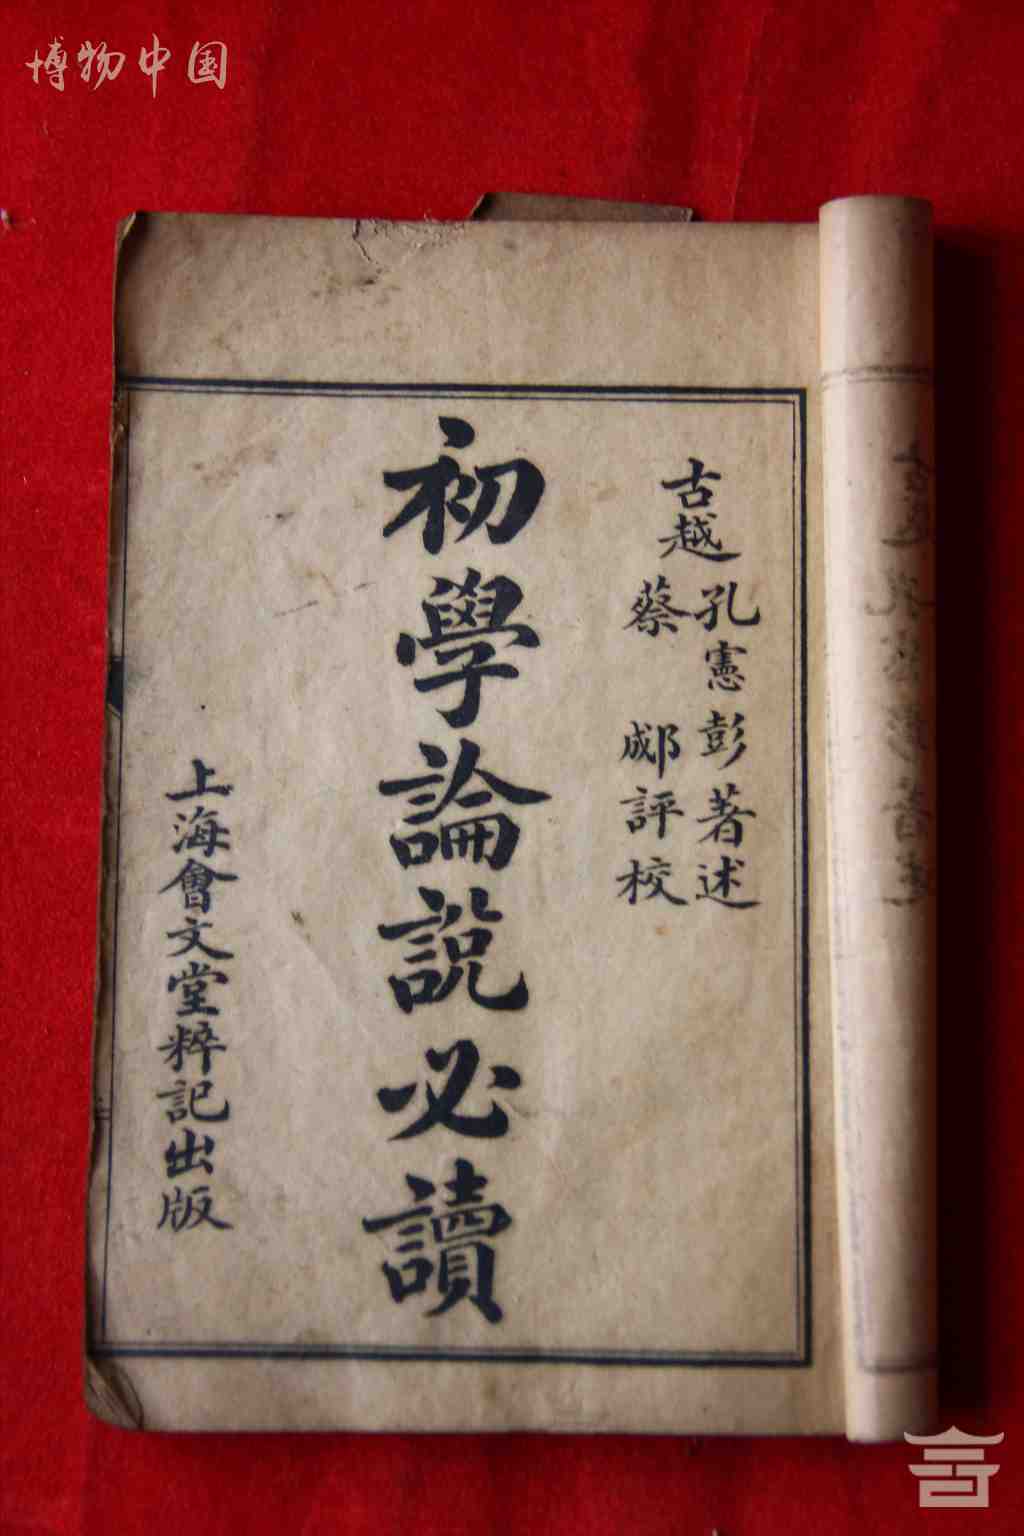 博物中国
古越
孔憲彭著述
蔡郕評校
初學論說必讀
上海會文堂粹記出版